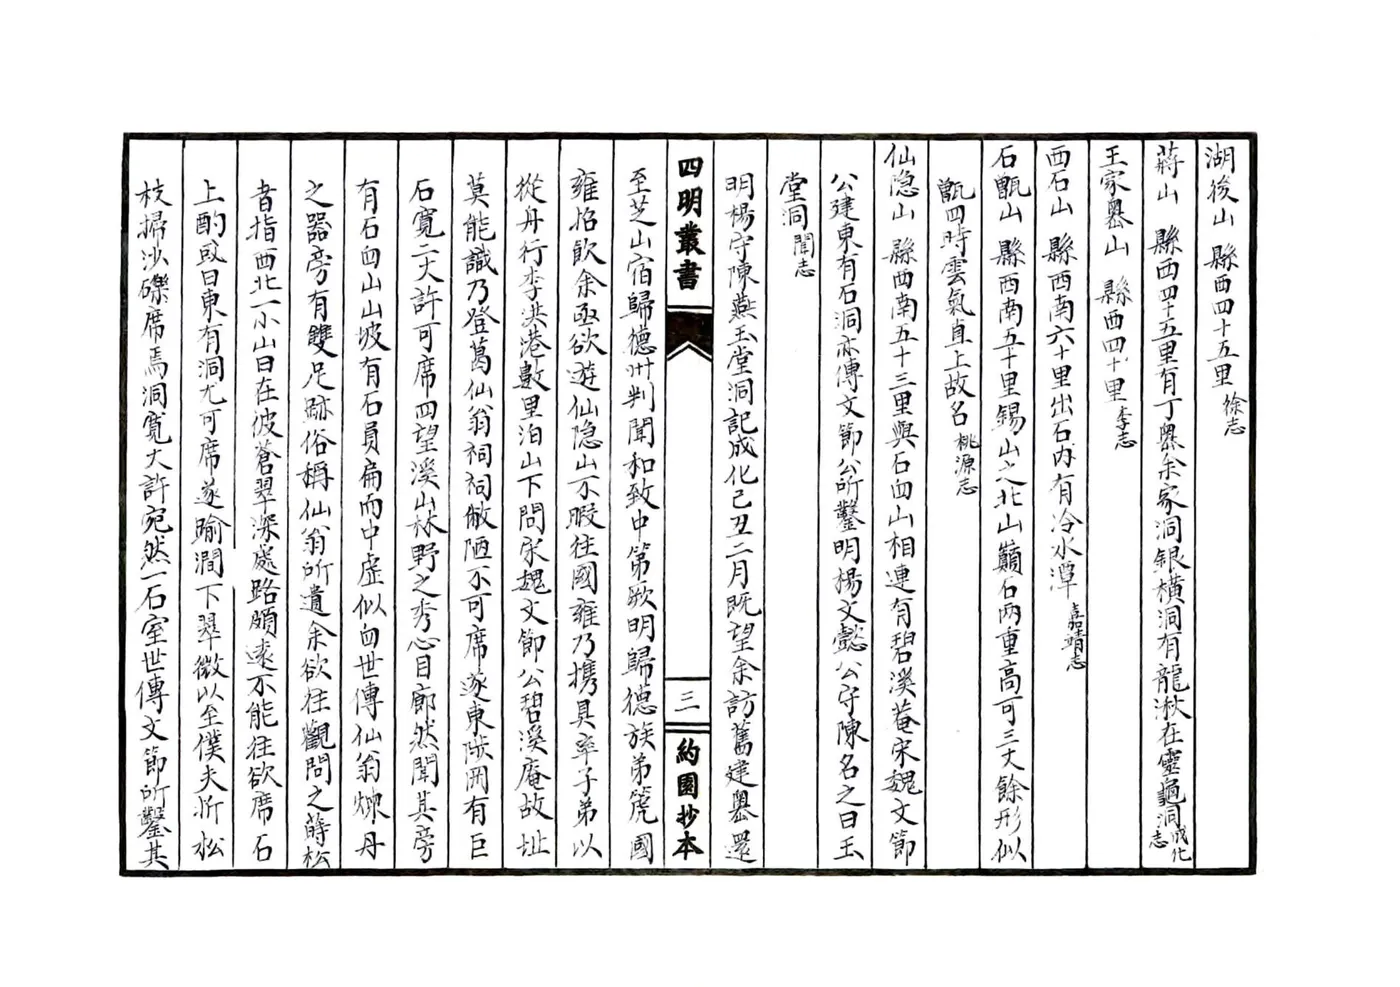 湖後山 縣西四十五里 徐志
蔣山 縣西四十五里有丁嶴余家洞銀橫洞有龍湫在靈龜洞 成化志
王家嶴山 縣西四十里 李志
西石山 縣西南六十里出石内有冷水潭 嘉靖志
石甑山 縣西南五十里錫山之北山巔石两重高可三丈餘形似
甑四時雲氣直上故名 桃源志
仙隐山 縣西南五十三里與石臼山相連有碧溪菴宋魏文節
公建東有石洞亦傳文節公所鑿明楊文懿公守陳名之曰玉
堂洞 聞志
明楊守陳燕玉堂洞記成化己丑二月既望余訪舊建嶴還
四明叢書
三
約園抄本
至芝山宿歸德州判聞和致中第厥明歸德族弟箎國
雍招飲余亟欲遊仙隐山不暇往國雍乃携具率子弟以
從舟行李洪港數里泊山下問宋魏文節公碧溪庵故址
莫能識乃登葛仙翁祠祠敝陋不可席遂東陟岡有巨
石寬二丈許可席四望溪山林野之秀心目廓然聞其旁
有石臼山山坡有石員扁而中虚似臼世傳仙翁煉丹
之器旁有雙足跡俗稱仙翁所遺余欲往觀問之蒔松
者指西北一小山曰在彼蒼翠深處路頗遠不能往欲席石
上酌或曰東有洞尤可席遂踰澗下翠微以至僕夫斨松
枝掃沙礫席焉洞寬丈許宛然一石室世傳文節所鑿其